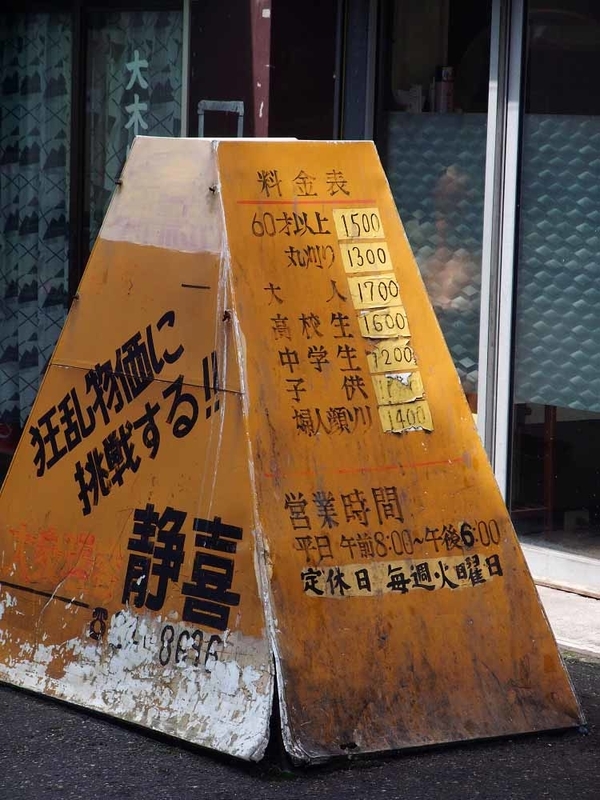 大木
料金表
60才以上 1500
丸刈り 1300
大人 1700
高校生 1600
中学生 1200
子供
婦人顔ソリ 1400
営業時間
平日 午前8:00~午後6:00
定休日 毎週・火曜日
狂乱物価に
挑戦する!!
静喜
8636